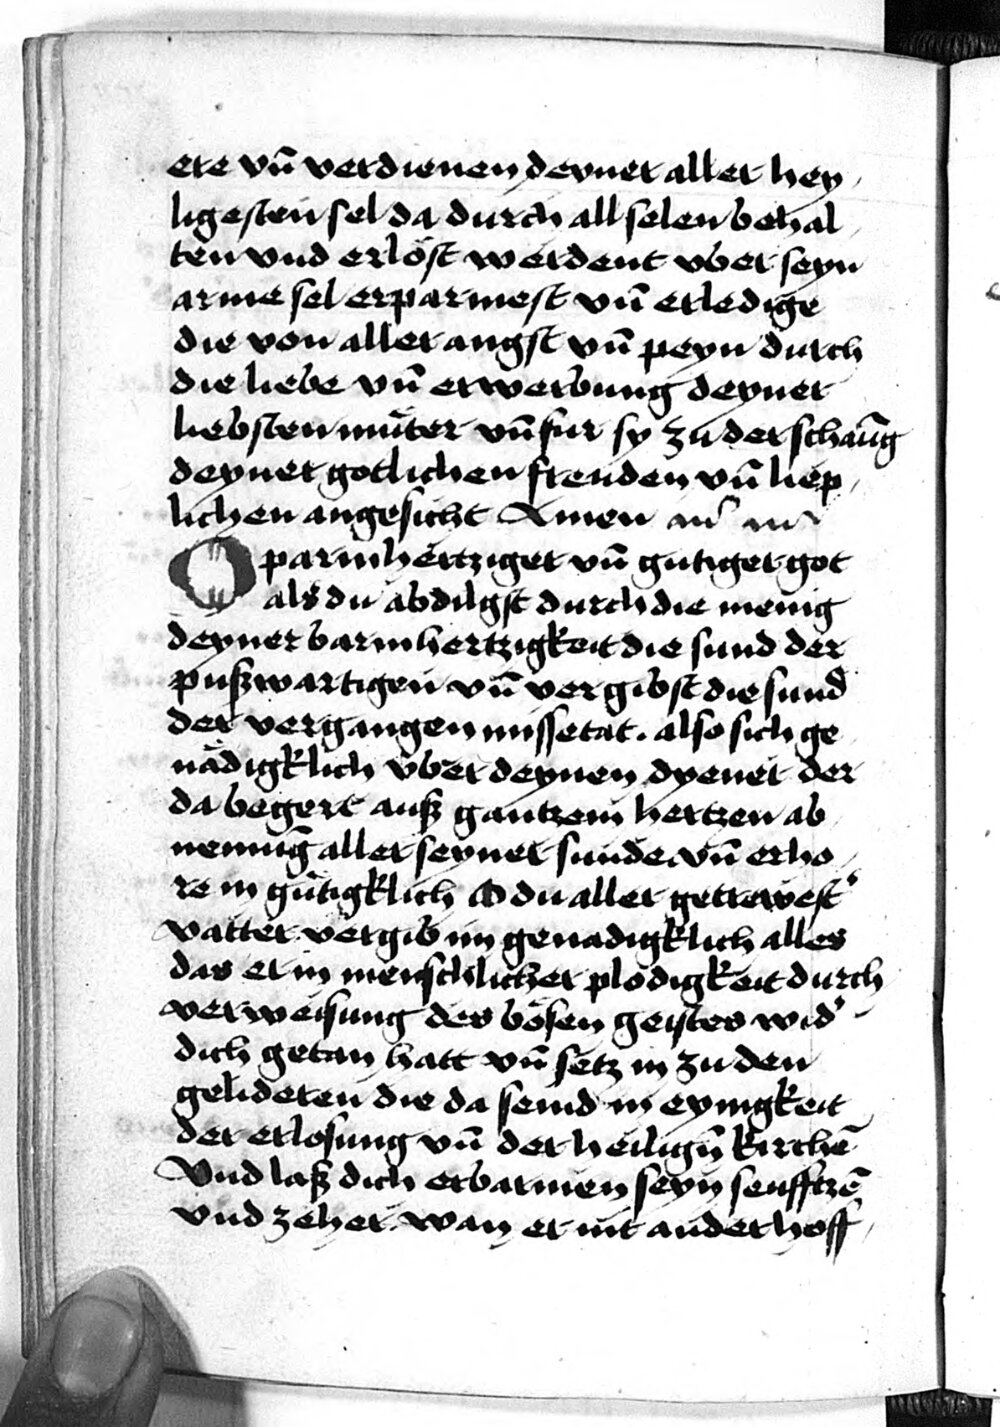 ere vn̄ verdienen deyner aller hey
ligesten sel da durch all selen behal
ten vnd erlöst werdent vber seyn
arme sel erparmest vn̄ erledige
die von aller angst vn̄ peyn durch
die liebe vn̄ erwerbung deyner
liebsten muͤter vn̄ fur sy zu der schaūg
deyner gotlichen freuden vn̄ liep
lichen angesicht Amen
O parmhertziger vn̄ gutiger got
als du abdilgst durch die menig
deyner barmhertzigkeit die sund der
pußwartigen vn̄ vergibst die sund
der vergangen missetat. also sich ge
nädigklich vber deynen dyener der
da begert auß gantzem hertzen ab
nemūg aller seyner sunde. vn̄ erho
re in guͤtigklich O du aller getrewest'
vatter vergib im genadigklich alles
das er in menschlicher plodigkeit durch
verweisung des bösen geistes wid'
dich getan hatt vn̄ setz in zu den
gelideren die da seind in eynigkeit
der erlosung vn̄ der heilign̄ kirchē
Vnd laß dich erbarmen seyn seufftzē
vnd zeher. wan er nit ander hoff